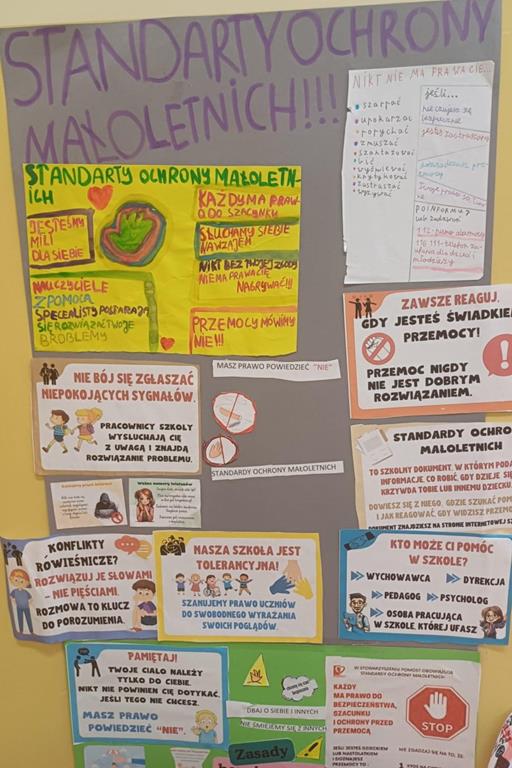 STANDARTY OCHRONY
MAŁOLETNICH!!!
NIKT NIE MA PRAWA CIĘ...
szarpać
upokarzać
popychać
zmuszać
szantażować
bić
wyśmiewać
krytykować
zastraszać
wyzywać
jeśli...
nie czujesz się
bezpiecznie
jesteś zastraszony
doświadczasz prze-
mocy
Twoje prawa są łama-
ne
POINFORMUJ
lub zadzwoń
112-
116 111-telefon za-
ufania dla dzieci i
młodzieży
STANDARTY OCHRONY MAŁOLETN-
ICH
JESTEŚMY
MILI
DLA SIEBIE
KAŻDY MA PRAW-
O DO SZACUNKU
SŁUCHAMY SIEBIE
NAWZAJEM
NIKT BEZ TWOJEJ ZGODY
NIE MA PRAWA CIĘ
NAGRYWAĆ!!!
NAUCZYCIELE
Z POMOCĄ
SPECJALISTY POSTARAJĄ
SIĘ ROZWIĄZAĆ TWOJE
PROBLEMY
PRZEMOCY MÓWIMY
NIE!!!
ZAWSZE REAGUJ,
GDY JESTEŚ ŚWIADKIEM
PRZEMOCY!
PRZEMOC NIGDY
NIE JEST DOBRYM
ROZWIĄZANIEM.
NIE BÓJ SIĘ ZGŁASZAĆ
NIEPOKOJĄCYCH SYGNAŁÓW.
PRACOWNICY SZKOŁY
WYSŁUCHAJĄ CIĘ
Z UWAGĄ I ZNAJDĄ
ROZWIĄZANIE PROBLEMU.
MASZ PRAWO POWIEDZIEĆ "NIE"
STANDARDY OCHRONY MAŁOLETNICH
STANDARDY OCHRO
MAŁOLETNICH
TO SZKOLNY DOKUMENT, W KTÓRYM PODA
INFORMACJE, CO ROBIĆ, GDY DZIEJE SIĘ
KRZYWDA TOBIE LUB INNEMU DZIECKU.
DOWIESZ SIĘ Z NIEGO, GDZIE SZUKAĆ POM
I JAK REAGOWAĆ GDY WIDZISZ PRZEMO
DOKUMENT ZNAJDZIESZ NA STRONIE INTERNETOWEJ SZ
Ważne numery telefonów
KONFLIKTY
RÓWIEŚNICZE?
ROZWIĄZUJ JE SŁOWAMI
- NIE PIĘŚCIAMI.
ROZMOWA TO KLUCZ
DO POROZUMIENIA.
NASZA SZKOŁA JEST
TOLERANCYJNA!
SZANUJEMY PRAWO UCZNIÓW
DO SWOBODNEGO WYRAŻANIA
SWOICH POGLĄDÓW.
KTO MOŻE CI POMÓC
W SZKOLE?
WYCHOWAWCA
DYREKCJA
PEDAGOG
PSYCHOLOG
OSOBA PRACUJĄCA
W SZKOLE, KTÓREJ UFASZ
PAMIĘTAJ!
TWOJE CIAŁO NALEŻY
TYLKO DO CIEBIE.
NIKT NIE POWINIEN CIĘ DOTYKAĆ,
JEŚLI TEGO NIE CHCESZ.
MASZ PRAWO
POWIEDZIEĆ "NIE".
DBAJ O SIEBIE I INNYCH
NIE ŚMIEJEMY SIĘ Z INNYCH
Zasady
W STOWARZYSZENIU POMOST OBOWIĄZUJĄ
STANDARDY OCHRONY MAŁOLETNICH
KAŻDY
MA PRAWO DO
BEZPIECZEŃSTWA,
SZACUNKU
I OCHRONY PRZED
PRZEMOCĄ
STOP
JEŚLI JESTEŚ DZIECKIEM
LUB NASTOLATKIEM
I DOZNAJESZ
PRZEMOCY TO :
NIE ZGADZAJ SIĘ NA TO, ŻE: